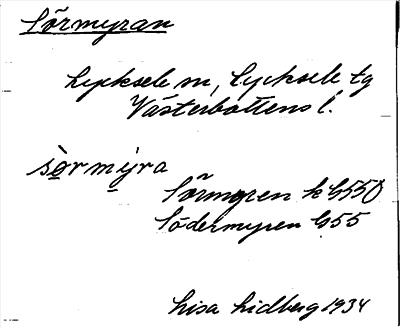 Sörmyran
Lycksele sn, Lycksele tg
Västerbottens l.
sörmyra
Sörmyren k G55D
Södermyren G55
Lisa Lidberg 1934